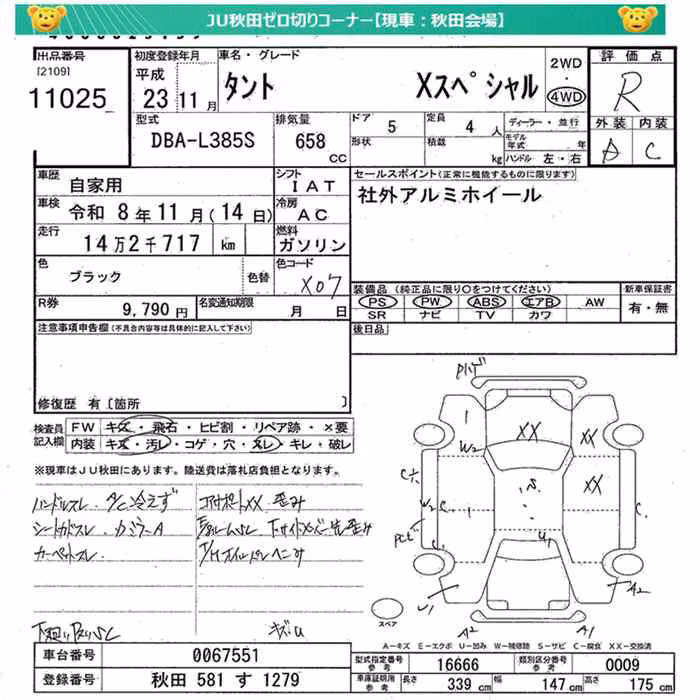 JU秋田ゼロ切りコーナー【現車：秋田会場】
出品番号 初度登録年月 車名・グレード 2WD 評価点
[2109] 平成 ・ R
11025 23 11月 タント Xスペシャル 4WD
型式 排気量 ドア 5 定員 4 人 ディーラー・並行 外装 内装
DBA-L385S 658 CC 形状 積載 kg モデル年式 年 A C
ハンドル 左・右
車歴 自家用 シフト IAT セールスポイント(正常に機能するものに限ります)
車検 令和 8年11月(14日) 冷房 AC 社外アルミホイール
走行 14万2千717 km 燃料 ガソリン
色 ブラック 色替 色コード X07
装備品 (純正品に限り〇をつけてください) 新車保証書
R券 9,790円 名変通知期限 月 日 PS PW ABS エアB AW 有・無
SR ナビ TV カワ
注意事項申告欄(不具合内容等は具体的に記入して下さい) 後日品
修復歴 有〔箇所
検査員記入欄 FW キズ・飛石・ヒビ割・リペア跡・×要
内装 キズ・汚レ・コゲ・穴・スレ・キレ・破レ
※現車はJU秋田にあります。陸送費は落札店負担となります。
ハンドルスレ A/C冷えず コアサポートXX 歪み
シートカドスレ カブラーA
カーペットスレ
下廻り
キズU
XX XX
W2
XX
S
W2 C
C
U1
U1 A2
A2 A1
スペア
A-キズ E-エクボ U-凹み W-補修跡 S-サビ C-腐食 XX-交換済
車台番号 0067551 型式指定番号 参考 16666 類別区分番号 参考 0009
登録番号 秋田 581 す 1279 車庫証明用 参考 長さ 339 cm 幅 147 cm 高さ 175 cm